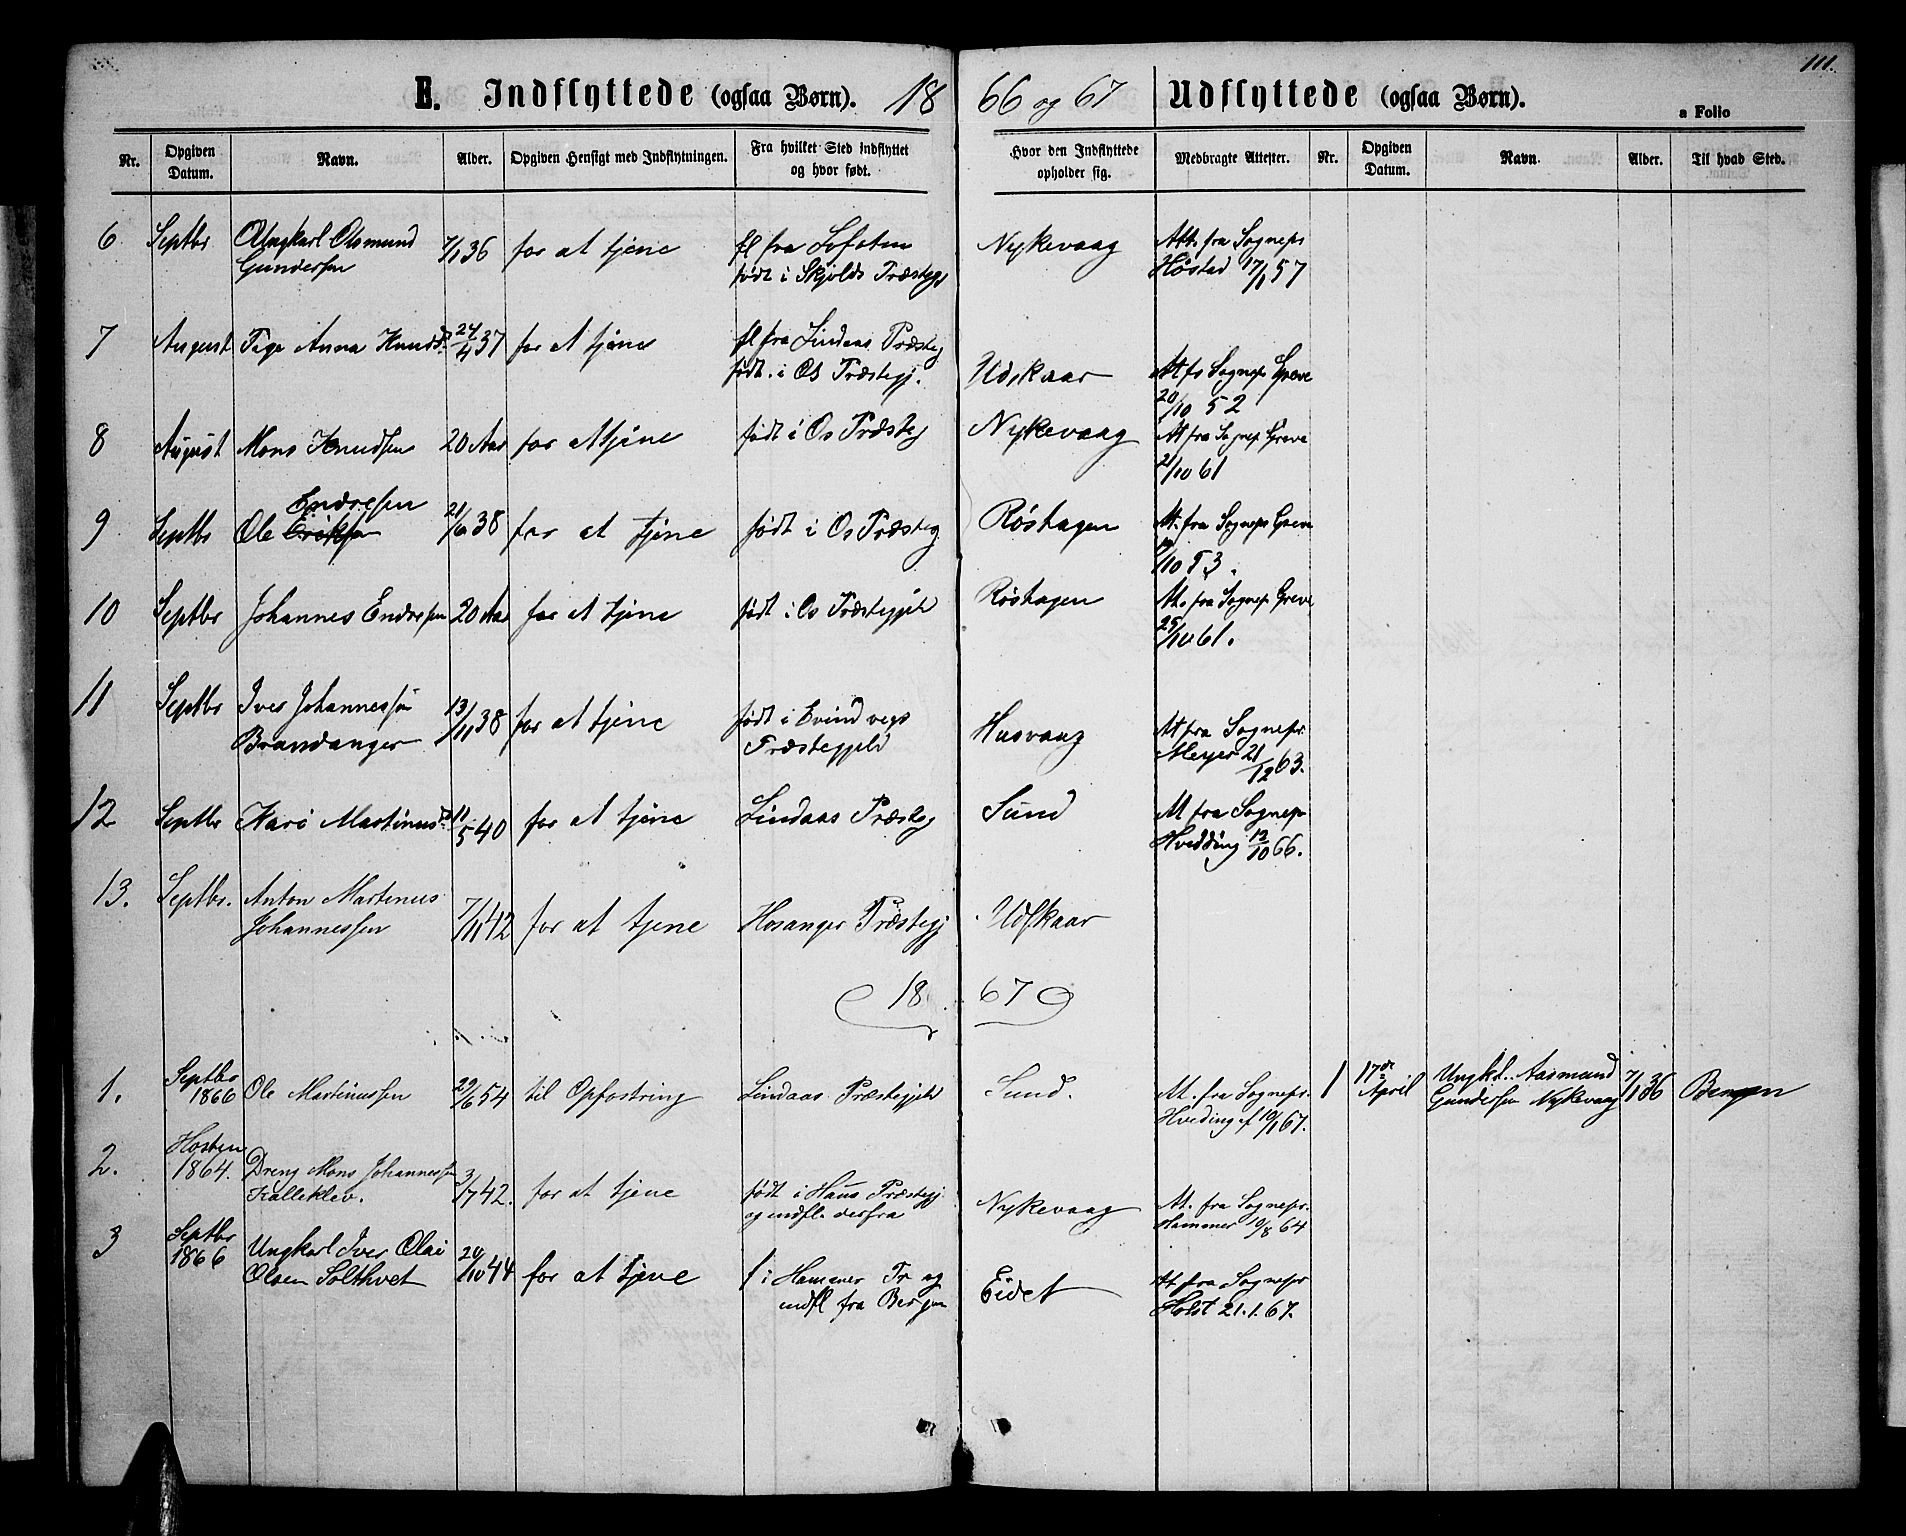 111.
E. Indflyttede (ogsaa Børn). 18
66 og 67 Udflyttede (ogsaa Børn).
a Folio
Nr. Opgiven Datum. Navn. Alder. Opgiven Hensigt med Indflytningen. Fra hvilket Sted indflyttet og hvor født.
Hvor den Indflyttede opholder sig. Medbragte Attester. Nr. Opgiven Datum. Navn. Alder. Til hvad Sted.
6 Septbr Ungkarl Osmund 7/1 36 for at tjene fl fra Lofoten Nykevaag Att. fra Sognepr
Gundersen født i Skjolds Præstegj Høstad 17/1 57
7 August Pige Anna Knudsd. 24/4 37 for at tjene fl fra Lindaas Præsteg
født. i Os Præstegj. Udskaar Att fr Sognep. Greve
20/10 52
8 August Mons Knudsen 20 Aar for at tjene født i Os Præsteg Nykevaag At fra Sognep Greve
21/10 61
9 Septbr Ole Eriksen Endresen 21/6 38 for at tjene født i Os Præsteg Røshagen At. fra Sognepr Greve
/10 53.
10 Septbr Johannes Endresen 20 Aar for at tjene født i Os Præstegjeld Røshagen At. fra Sognepr Greve
25/10 61.
11 Septbr Iver Johannessen 13/11 38 for at tjene født i Evindvigs Husvaag At fra Sognepr.
Brandanger Præstegjeld Meyer 21/12 63.
12 Septbr Kari Martinusd. 11/5 40 for at tjene Lindaas Præsteg Sund At fra Sognepr
Hvidding 12/10 66.
13. Septbr. Anton Martinus 7/11 42 for at tjene Hosanger Præstegj Udskaar
Johannessen
18 67
1. Septbr 1866 Ole Martinussen 29/6 54 til Opfostring Lindaas Præstegjeld Sund. At. fra Sognepr. 1 17de April Ungkl. Aasmund 7/1 36 Bergen
Hveding af 10/1 67. Gundersen Nykevaag
2. Høsten 1864. Dreng Mons Johannessen 3/7 42. for at tjene født i Haus Præstegj Nykevaag At. fra Sognepr.
Kalleklev. og indfl. derfra Hammer 10/8 64
3 Septbr 1866 Ungkarl Iver Olai 20/10 44 for at tjene f i Hammer Pr og Eidet At fra Sognepr
Olsen Solthvet indfl fra Bergen Holst 21.1.67.